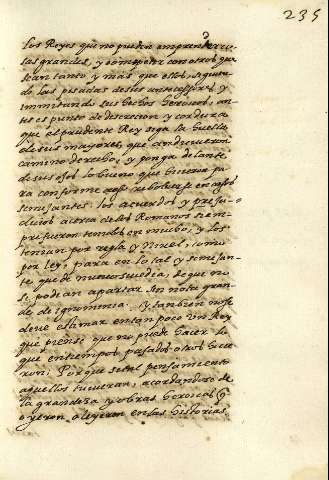 235
los Reyes que no pueden emprender co
sas grandes, y competir con otros que
sean tanto, y mas que ellos. Siguien
do las pisadas de sus antecessores, y
immitando sus hechos heroicos, an
tes es punto de discrecion, y cordura
que el prudente Rey siga la huella
de sus mayores, que anduvieron
camino derecho, y ponga delante
de sus ojos lo bueno que hicieron pa
ra conforme a esso en casos
semejantes los acuerdos, y
acerca de los Romanos siem
pre fueron tenidos en mucho, y los
tenian por regla, y Nivel, como
por ley, para en lo tal, y semejan
te, que de nuevo sucedia, de que no
se podian apartar sin nota gran
de de ignominia. Y tambien no se
deve estimar en tan poco un Rey
que piense que no puede hacer lo
que en tiempos pasados otros hicie
ron; Porque se tal pensamiento
aquellos tuvieran, acordandose de
la grandeza, y obras heroicas q
oyeron, o leyeron en las historias